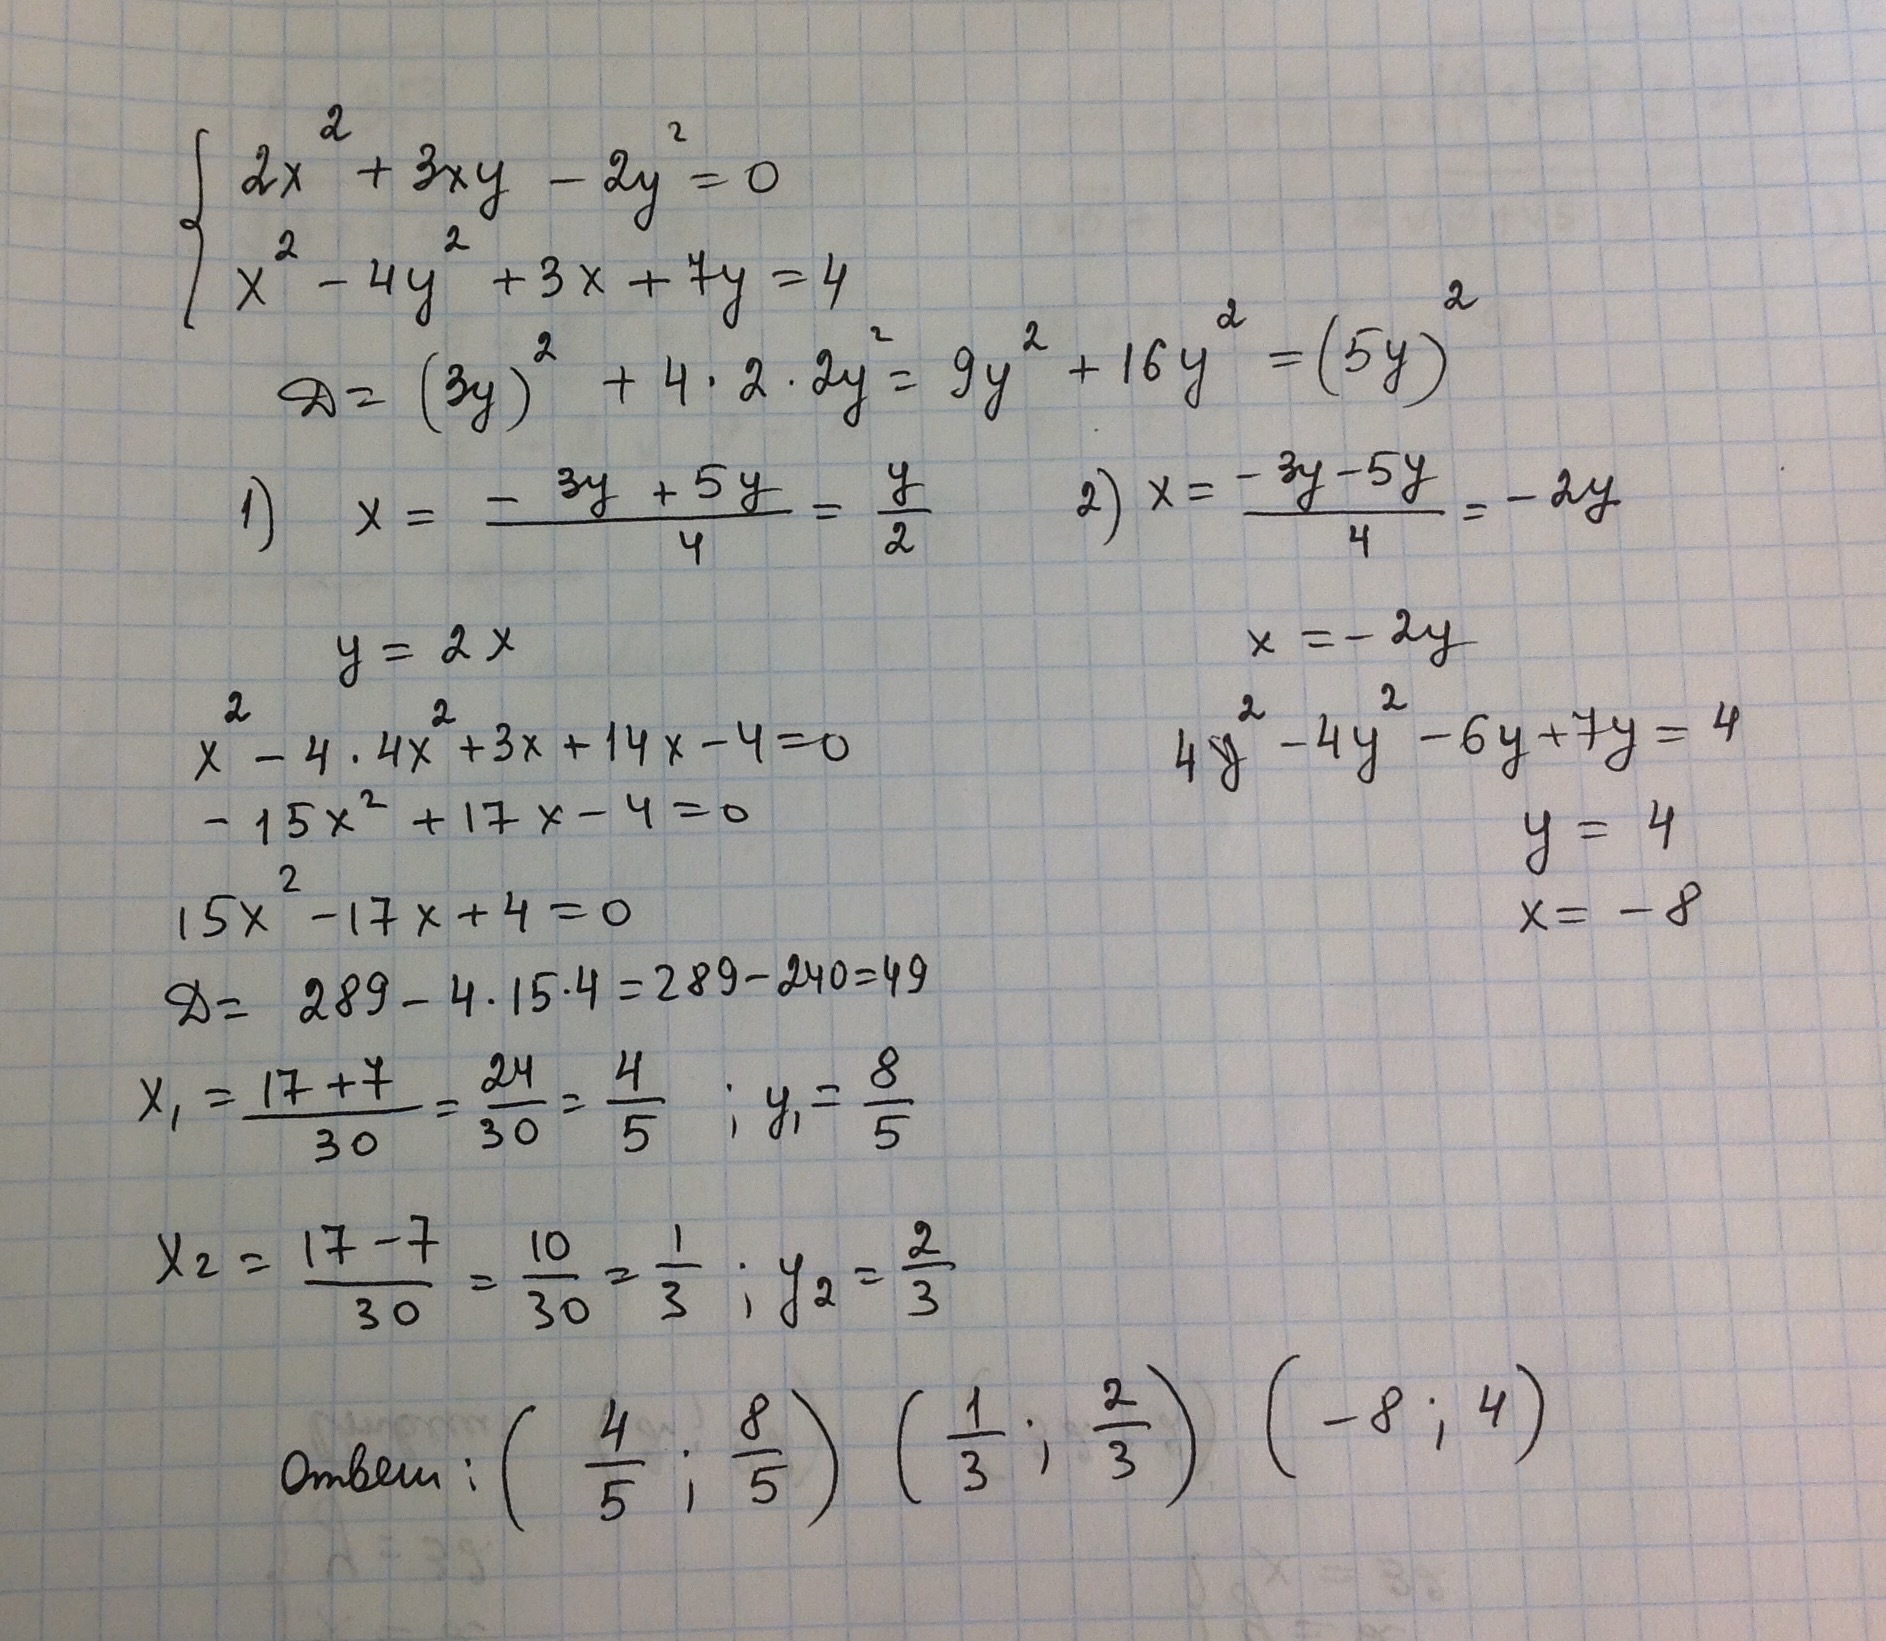 { 2x² + 3xy - 2y² = 0
x² - 4y² + 3x + 7y = 4
D = (3y)² + 4 · 2 · 2y² = 9y² + 16y² = (5y)²
1) x = (-3y + 5y)/4 = y/2
2) x = (-3y - 5y)/4 = -2y
y = 2x
x² - 4 · 4x² + 3x + 14x - 4 = 0
-15x² + 17x - 4 = 0
15x² - 17x + 4 = 0
D = 289 - 4 · 15 · 4 = 289 - 240 = 49
x₁ = (17 + 7)/30 = 24/30 = 4/5 ; y₁ = 8/5
x₂ = (17 - 7)/30 = 10/30 = 1/3 ; y₂ = 2/3
x = -2y
4y² - 4y² - 6y + 7y = 4
y = 4
x = -8
Ответ: (4/5 ; 8/5) (1/3 ; 2/3) (-8 ; 4)